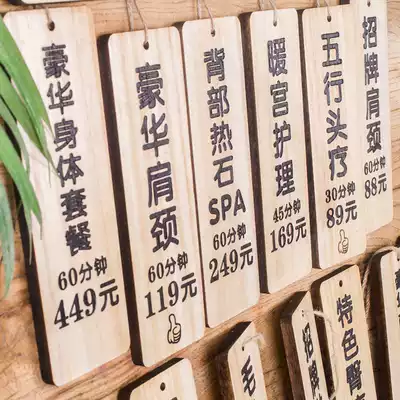 豪华身体套餐
60分钟
449元
豪华肩颈
60分钟
119元
背部热石SPA
60分钟
249元
暖宫护理
45分钟
169元
五行头疗
30分钟
89元
招牌肩颈
60分钟
88元
毛
招牌
特色臀疗